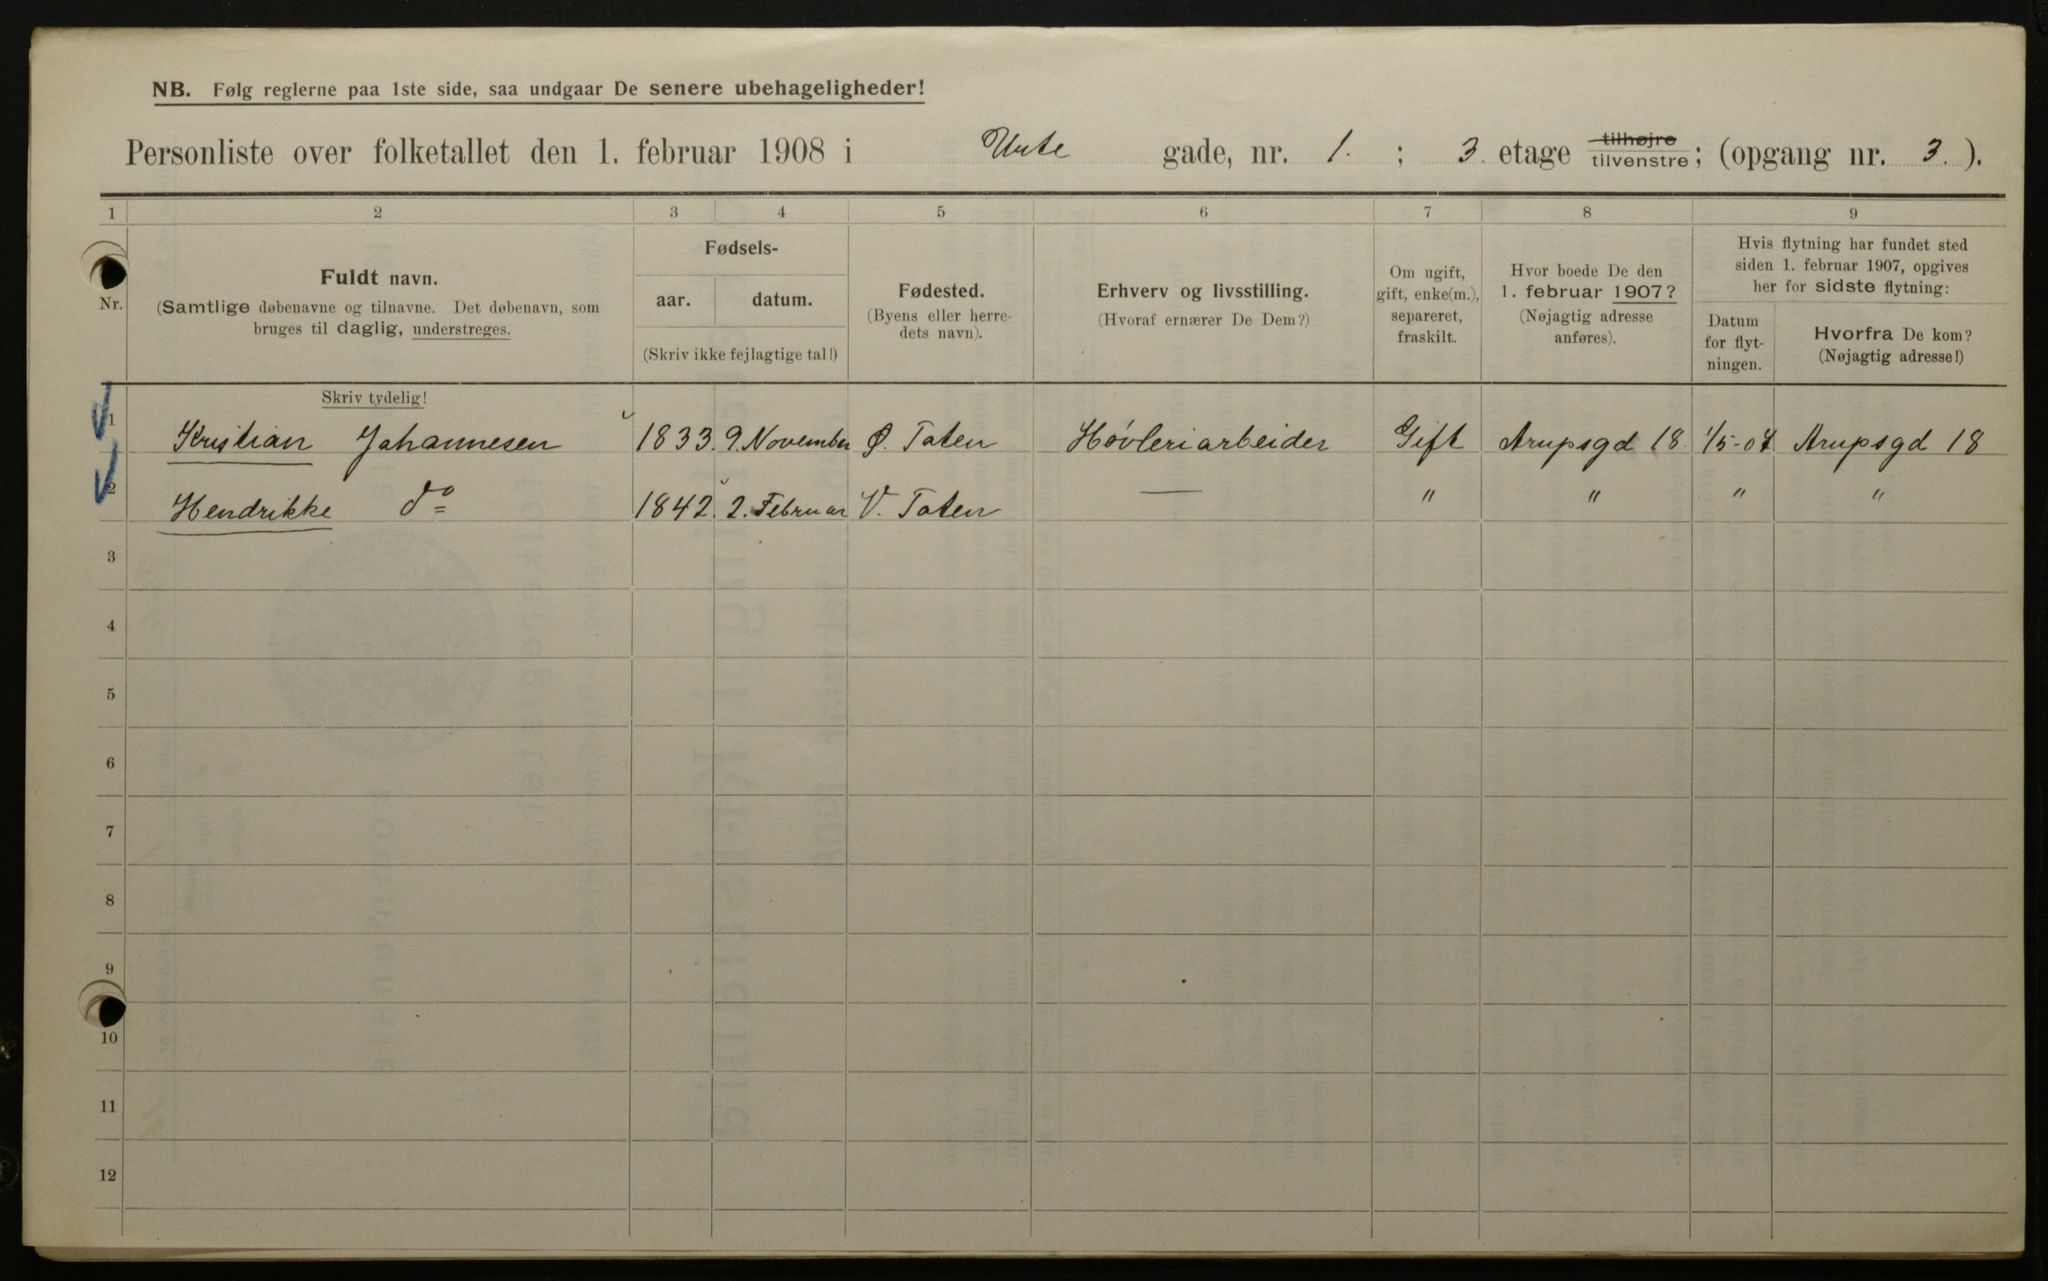 NB. Følg reglerne paa 1ste side, saa undgaar De senere ubehageligheder!
Personliste over folketallet den 1. februar 1908 i Urte gade, nr. 1. ; 3. etage tilhøjre tilvenstre; (opgang nr. 3. ).
1 2 3 4 5 6 7 8 9
Nr.
Fuldt navn.
(Samtlige døbenavne og tilnavne. Det døbenavn, som
bruges til daglig, understreges.
Fødsels-
aar. datum.
(Skriv ikke fejlagtige tal!)
Fødested.
(Byens eller herre-
dets navn).
Erhverv og livsstilling.
(Hvoraf ernærer De Dem?)
Om ugift,
gift, enke(m.),
separeret,
fraskilt.
Hvor boede De den
1. februar 1907?
(Nøjagtig adresse
anføres).
Hvis flytning har fundet sted
siden 1. februar 1907, opgives
her for sidste flytning:
Datum
for flyt-
ningen.
Hvorfra De kom?
(Nøjagtig adresse!)
Skriv tydelig!
1 Kristian Johannesen 1833. 9. November Ø. Toten Høvleriarbeider Gift Arupsgd 18. 1/5-07 Arupsgd 18
2 Hendrikke do 1842. 2. Februar V. Toten — " " " "
3
4
5
6
7
8
9
10
11
12